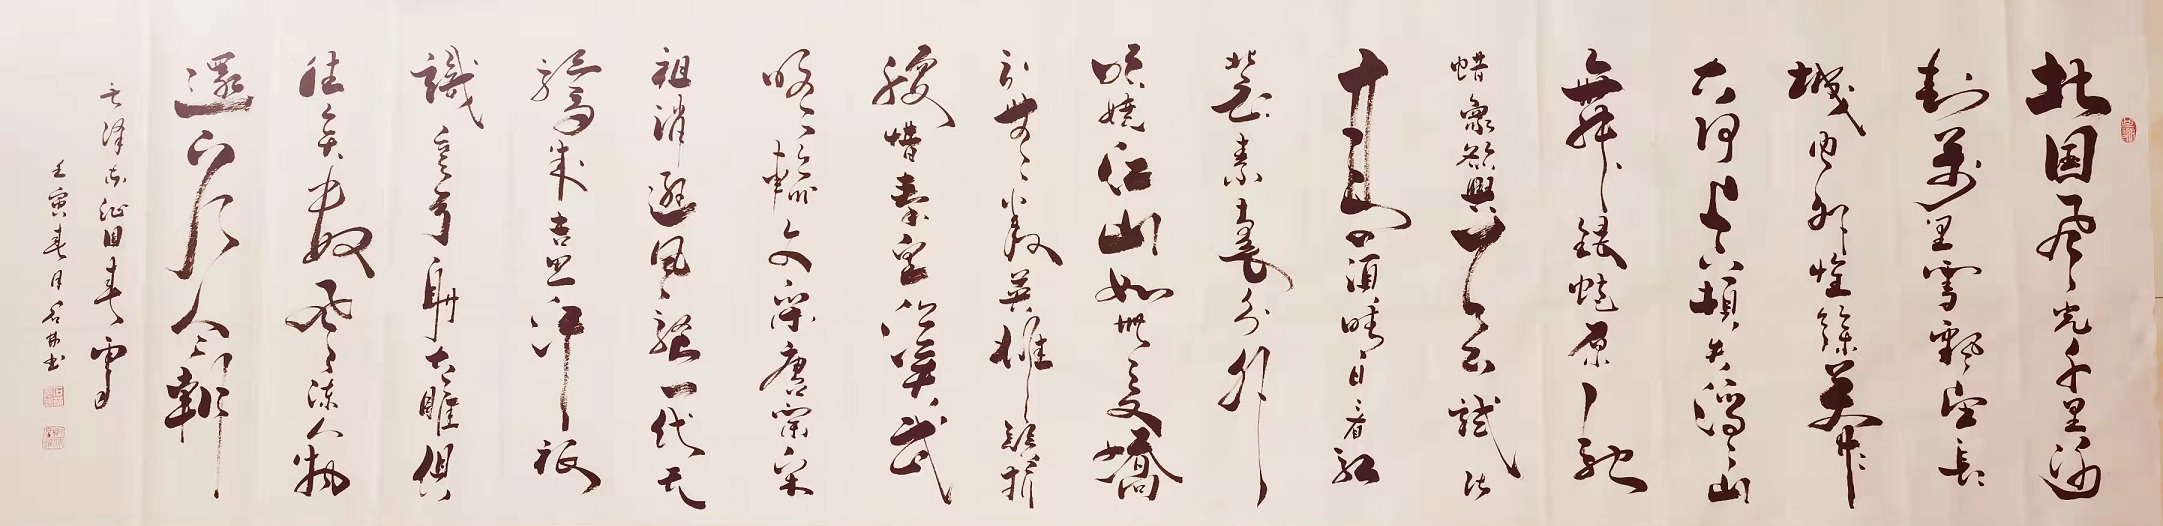 北国風光千里冰
封萬里雪飄望長
城内外惟餘莽々
大河上下頓失滔々山
舞銀蛇原馳
蜡象欲與天公試比
高須晴日看紅
裝素裹分外
妖嬈江山如此多嬌
引無數英雄競折
腰惜秦皇漢武
略輸文采唐宗宋
祖稍遜風騷一代天
驕成吉思汗祇
識彎弓射大雕俱
往矣數風流人物
還看今朝
毛澤東沁园春雪
壬寅春月 书